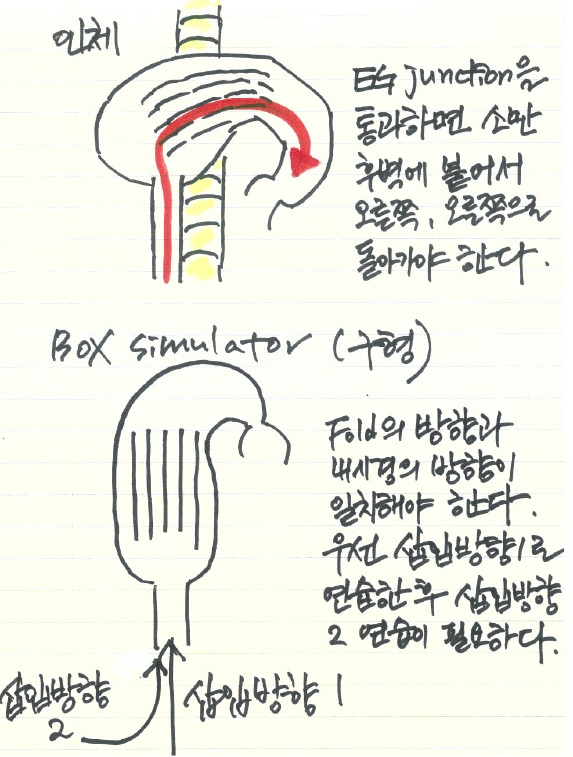 인체
EG junction을
통과하면 소만
후벽에 붙어서
오른쪽, 오른쪽으로
돌아가야 한다.
Box simulator (구형)
Fold의 방향과
내시경의 방향이
일치해야 한다.
우선 삽입방향1로
연습한 후 삽입방향
2 연습이 필요하다.
삽입방향
2
삽입방향 1